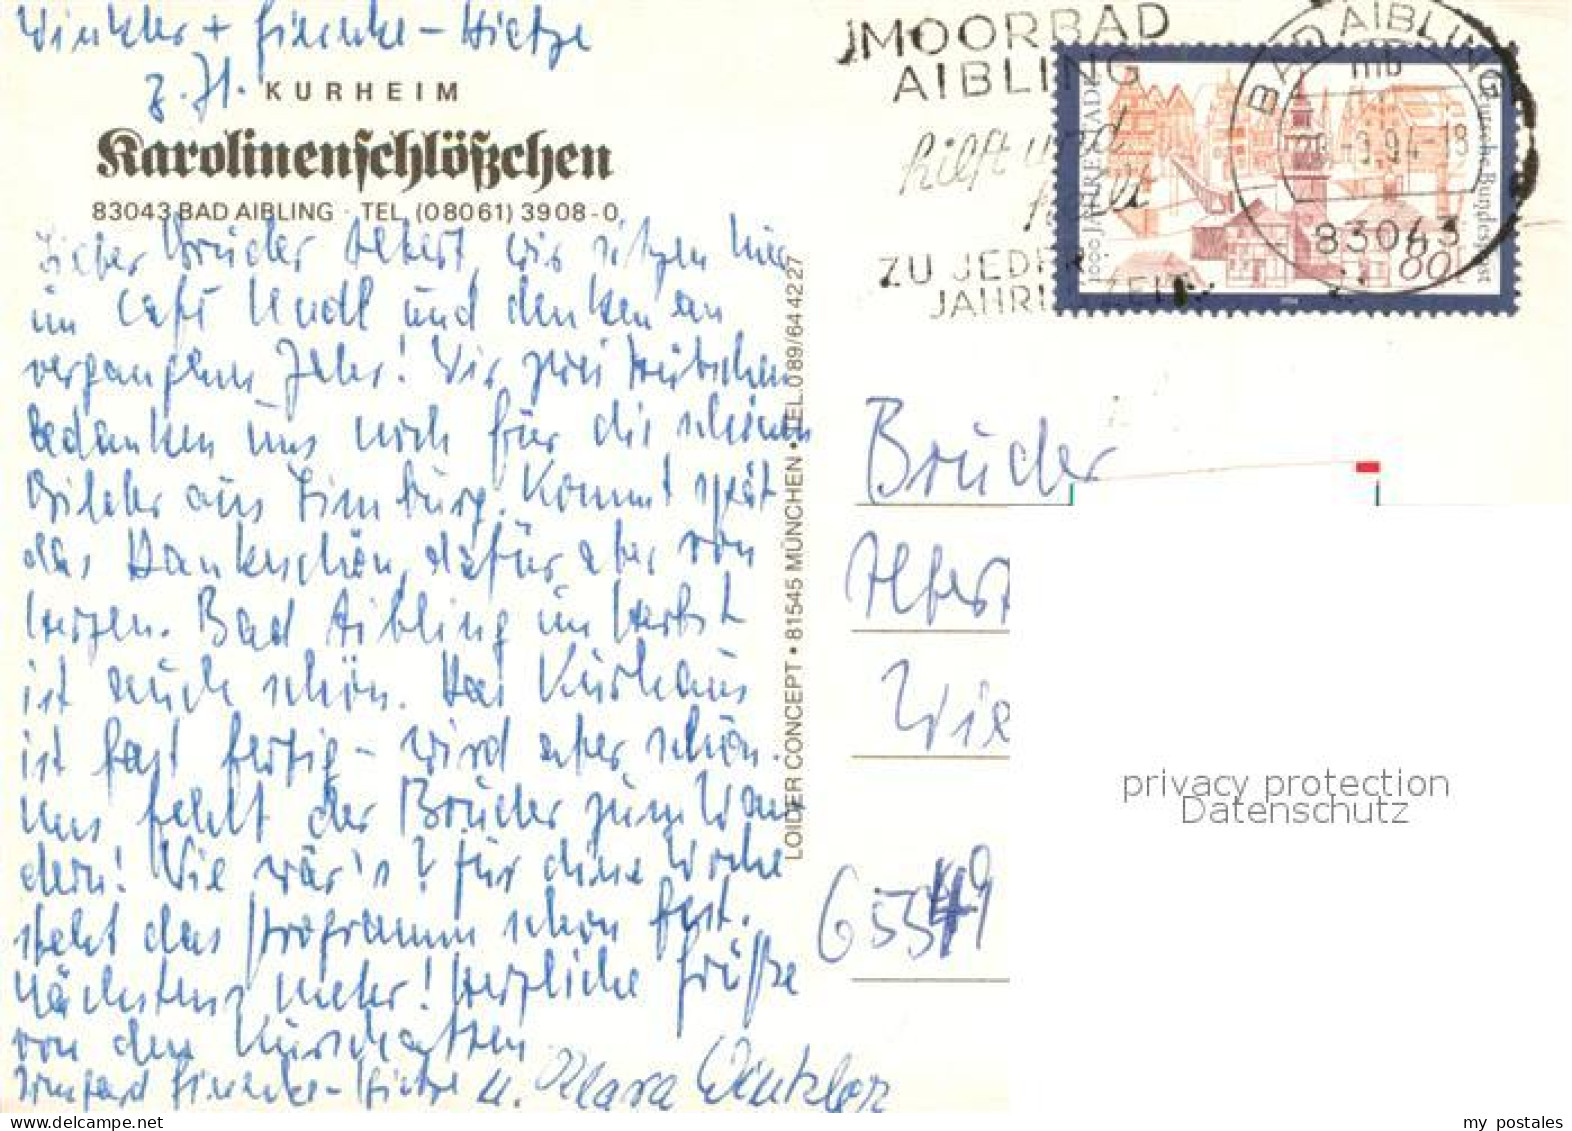 Winkler + Fincke-Hietze
z. Zt. KURHEIM
Karolinenschlößchen
83043 BAD AIBLING · TEL. (08061) 3908-0
Lieber Bruder Albert, wir sitzen hier
im Café und denken an
vergangenes Jahr! Wir zwei Hübschen
bedanken uns noch für die schönen
Bilder aus Limburg. Kommt spät
das Dankeschön, dafür aber von
Herzen. Bad Aibling im Herbst
ist auch schön. Das Kurhaus
ist fast fertig – wird aber schön.
Uns fehlt der Bruder zum Wan
dern! Wie wär's? Für diese Woche
steht das Programm schon fest.
Nächstens mehr! Herzliche Grüße
von den Kurschatten
Irmgard Fincke-Hietze u. Klara Winkler
LOIDER CONCEPT • 81545 MÜNCHEN • TEL. 089/644227
MOORBAD
AIBLING
hilft und
heilt
ZU JEDER
JAHRESZEIT
BAD AIBLING
mb
.94-18
83043
1000 JAHRE FÜRTH
Deutsche Bundespost
80
Bruder
Albert
Wie
65549
privacy protection
Datenschutz
my postales